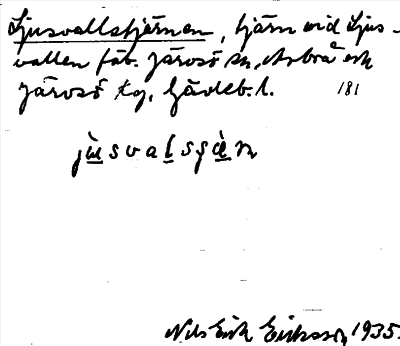 Ljusvallstjärnen, tjärn vid Ljus-
vallen fäb. Järvsö sn, Arbrå och
Järvsö tg, Gävleb. l. 181
jùsvalsçæ̀n
Nils Erik Eriksson, 1935.